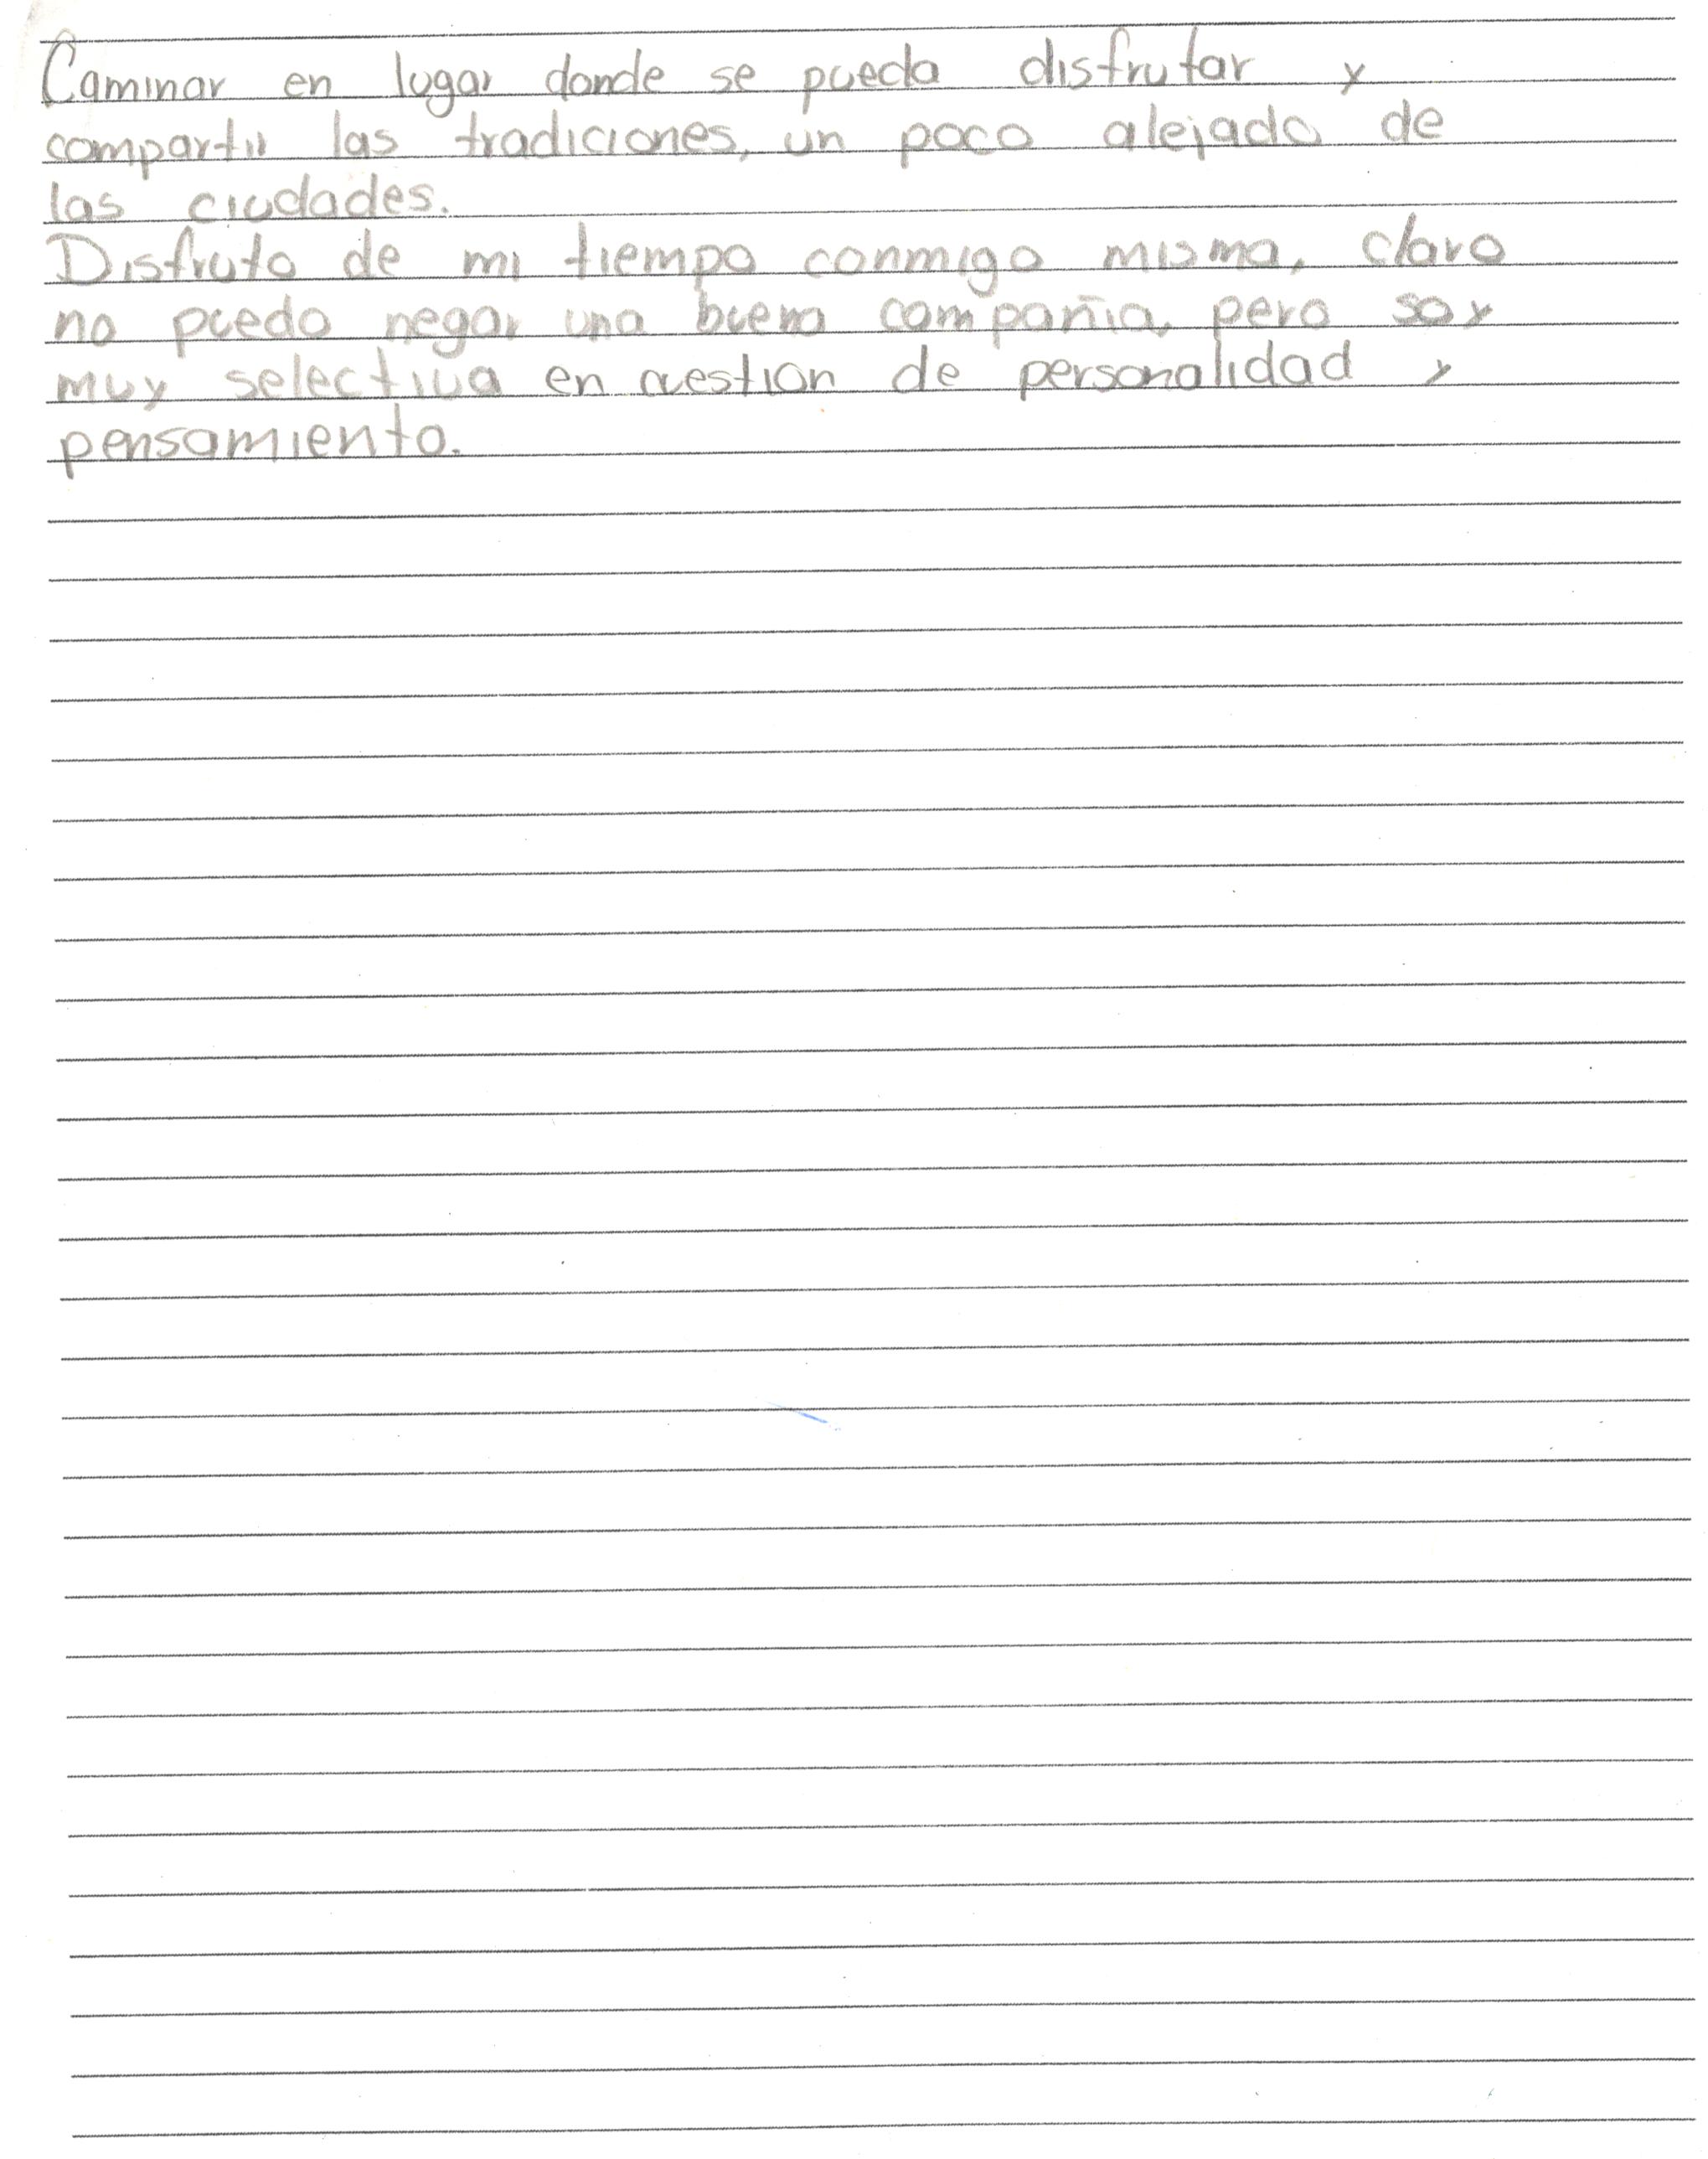 Caminar en lugar donde se pueda disfrutar y
compartir las tradiciones, un poco alejado de
las ciudades.
Disfruto de mi tiempo conmigo misma, claro
no puedo negar una buena compañia, pero soy
muy selectiva en cuestion de personalidad y
pensamiento.